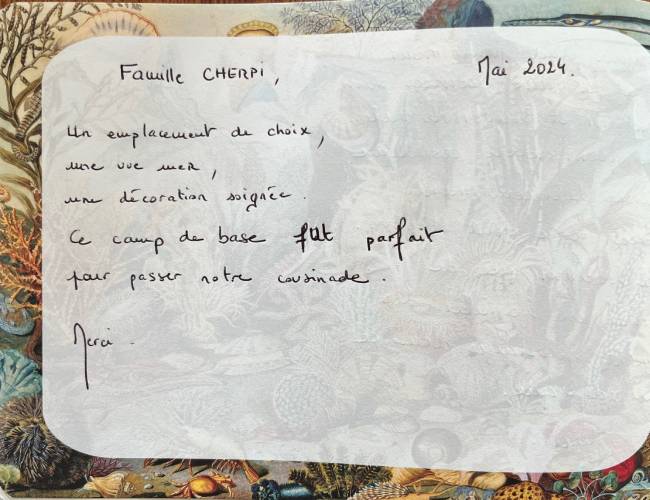 Famille CHERPI, Mai 2024.
Un emplacement de choix,
une vue mer,
une décoration soignée.
Ce camp de base fut parfait
pour passer notre cousinade.
Merci.